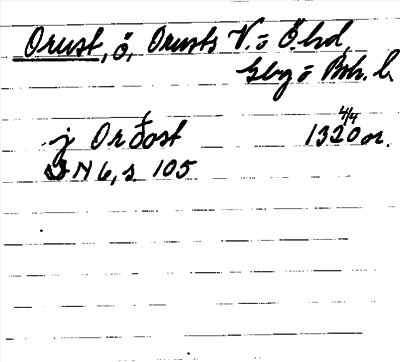 Orust, ö, Orusts V. o Ö. hd,
Gbg o Boh. l.
j Ordost 1320 4/4 or.
DN 6, s. 105